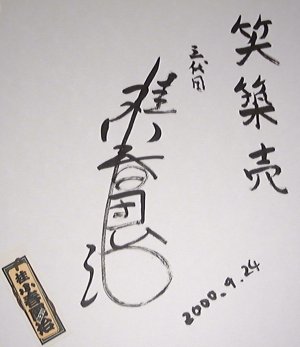 笑築売
三代目
桂小春団治
2000.9.24
桂小春団治